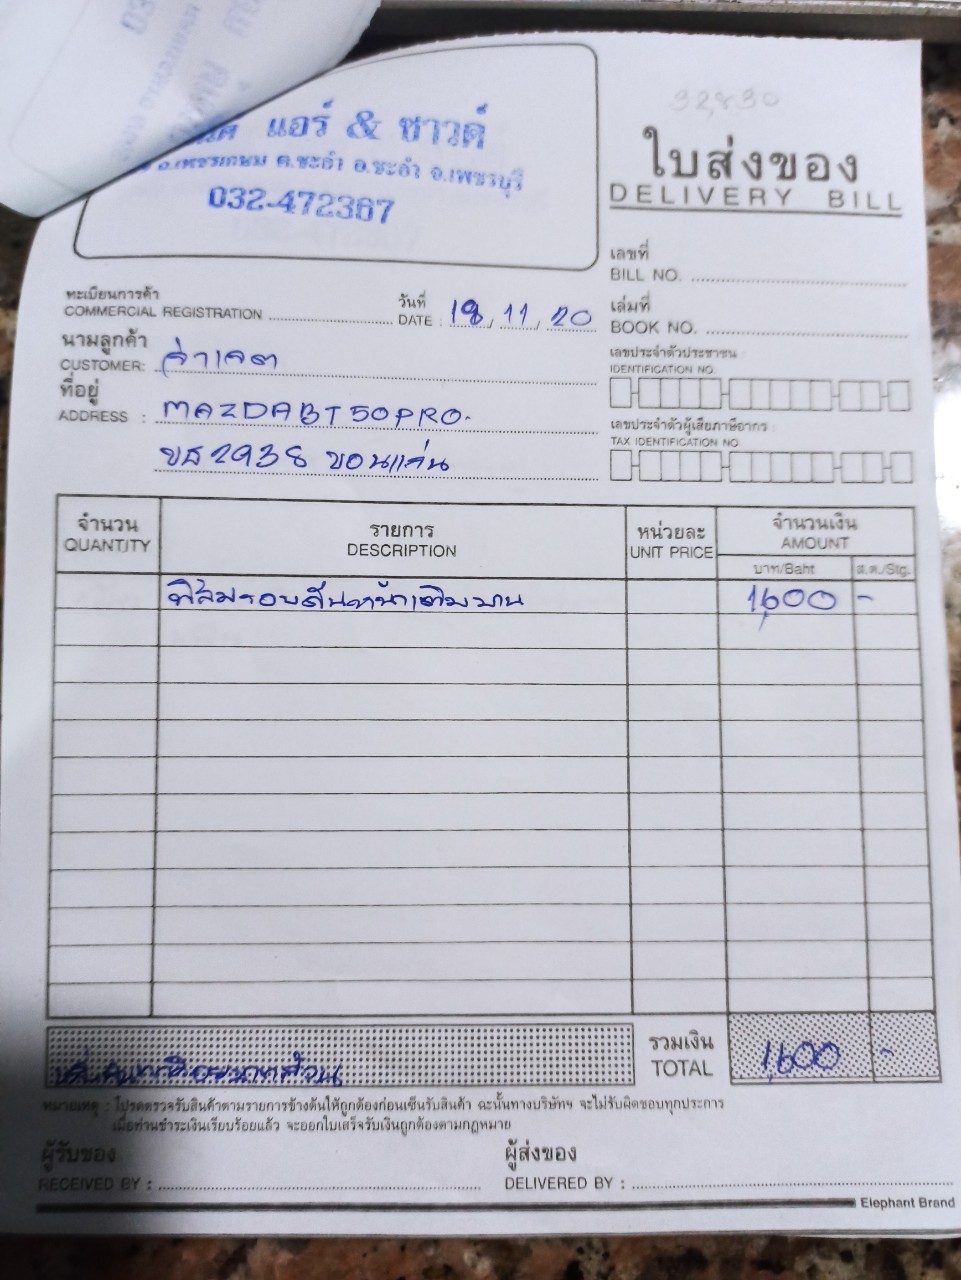 แอร์ & ซาวด์
ถ.เพชรเกษม ต.ชะอำ อ.ชะอำ จ.เพชรบุรี
032-472367
32,830
ใบส่งของ
DELIVERY BILL
เลขที่
BILL NO.
ทะเบียนการค้า
COMMERCIAL REGISTRATION
วันที่
DATE : 18, 11, 20
เล่มที่
BOOK NO.
นามลูกค้า
CUSTOMER: จ่าเจต
เลขประจำตัวประชาชน :
IDENTIFICATION NO.
ที่อยู่
ADDRESS : MAZDA BT 50 PRO.
2938 ขอนแก่น
เลขประจำตัวผู้เสียภาษีอากร :
TAX IDENTIFICATION NO.
จำนวน
QUANTITY
รายการ
DESCRIPTION
หน่วยละ
UNIT PRICE
จำนวนเงิน
AMOUNT
บาท/Baht
ส.ต./Stg.
ฟิล์มรอบคันหน้าเต็มบาน 1,600 -
รวมเงิน
TOTAL
1,600 -
หมายเหตุ : โปรดตรวจรับสินค้าตามรายการข้างต้นให้ถูกต้องก่อนเซ็นรับสินค้า ฉะนั้นทางบริษัทฯ จะไม่รับผิดชอบทุกประการ
เมื่อท่านชำระเงินเรียบร้อยแล้ว จะออกใบเสร็จรับเงินถูกต้องตามกฎหมาย
ผู้รับของ
RECEIVED BY :
ผู้ส่งของ
DELIVERED BY :
Elephant Brand